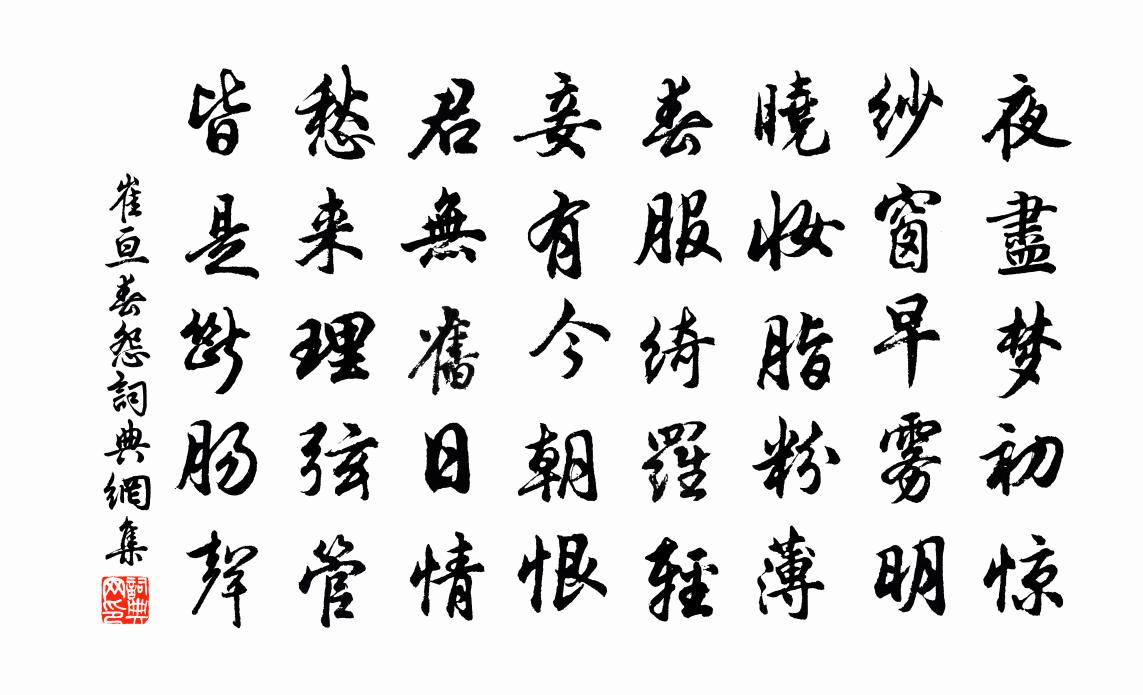 夜盡梦初惊
纱窗早雾明
曉妝脂粉薄
春服绮羅輕
妾有今朝恨
君無舊日情
愁来理弦管
皆是斷肠聲
崔亘春怨詞典網集
詞典网印